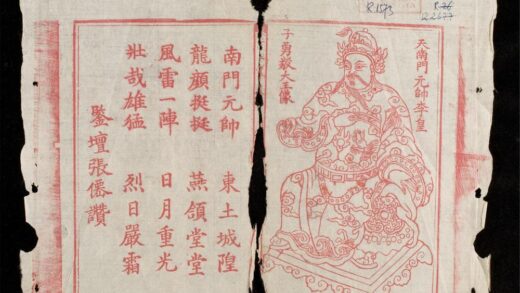 R.1573
R.2677
天南門元帥李皇
子勇毅大王像
南門元帥 東土城隍
龍顔挺挺 燕頷堂堂
風雷一陣 日月重光
壯哉雄猛 烈日嚴霜
鑒壇張僊讚